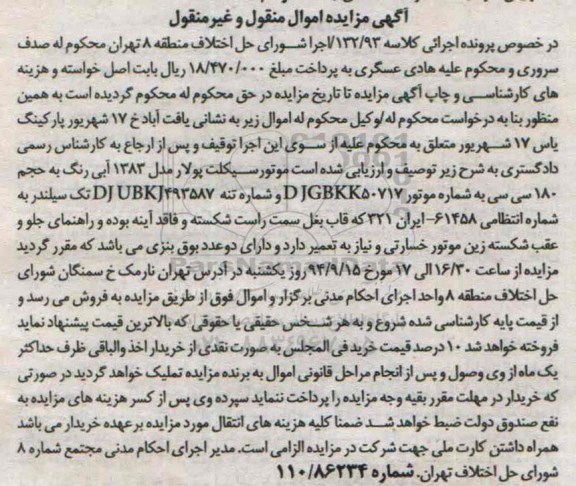 آگهی مزایده اموال منقول و غیرمنقول
در خصوص پرونده اجرائی کلاسه ۱۳۲/۹۳/اجرا شورای حل اختلاف منطقه ۸ تهران محکوم له صدف
سروری و محکوم علیه هادی عسگری به پرداخت مبلغ ۱۸/۴۷۰/۰۰۰ ریال بابت اصل خواسته و هزینه
های کارشناسی و چاپ آگهی مزایده تا تاریخ مزایده در حق محکوم له محکوم گردیده است به همین
منظور بنا به درخواست محکوم له /وکیل محکوم له اموال زیر به نشانی یافت آباد خ ۱۷ شهریور پارکینگ
یاس ۱۷ شهریور متعلق به محکوم علیه از سوی این اجرا توقیف و پس از ارجاع به کارشناس رسمی
دادگستری به شرح زیر توصیف و ارزیابی شده است موتورسیکلت پولار مدل ۱۳۸۳ آبی رنگ به حجم
۱۸۰ سی سی به شماره موتور D JGBKK۵۰۷۱۷ و شماره تنه DJ UBKJ۴۹۳۵۸۷ تک سیلندر به
شماره انتظامی ۶۱۴۵۸- ایران ۳۲۱ که قاب بغل سمت راست شکسته و فاقد آینه بوده و راهنمای جلو و
عقب شکسته زین موتور خسارتی و نیاز به تعمیر دارد و دارای دوعدد بوق بنزی می باشد که مقرر گردید
مزایده از ساعت ۱۶/۳۰ الی ۱۷ مورخ ۹۴/۹/۱۵ روز یکشنبه در آدرس تهران نارمک خ سمنگان شورای
حل اختلاف منطقه ۸ واحد اجرای احکام مدنی برگزار و اموال فوق از طریق مزایده به فروش می رسد و
از قیمت پایه کارشناسی شده شروع و به هر شخص حقیقی یا حقوقی که بالاترین قیمت پیشنهاد نماید
فروخته خواهد شد ۱۰ درصد قیمت خرید فی المجلس به صورت نقدی از خریدار اخذ والباقی ظرف حداکثر
یک ماه از وی وصول و پس از انجام مراحل قانونی اموال به برنده مزایده تملیک خواهد گردید در صورتی
که خریدار در مهلت مقرر بقیه وجه مزایده را پرداخت ننماید سپرده وی پس از کسر هزینه های مزایده به
نفع صندوق دولت ضبط خواهد شد ضمنا کلیه هزینه های انتقال مورد مزایده بر عهده خریدار می باشد
همراه داشتن کارت ملی جهت شرکت در مزایده الزامی است. مدیر اجرای احکام مدنی مجتمع شماره ۸
شورای حل اختلاف تهران. شماره ۱۱۰/۸۶۲۳۴